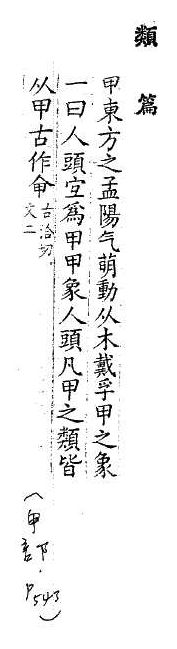 類篇
甲東方之孟陽气萌動从木戴孚甲之象
一曰人頭空爲甲甲象人頭凡甲之類皆
从甲古作𠇚古洽切
文二
(甲部.P543)